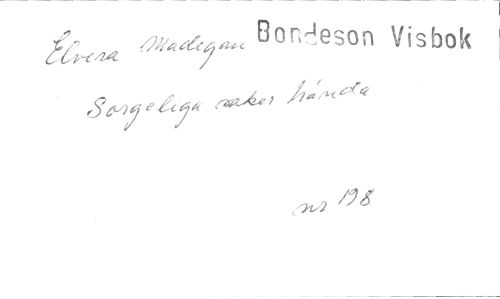 Elvira Madigan Bondeson Visbok
Sorgeliga saker hända
nr 198